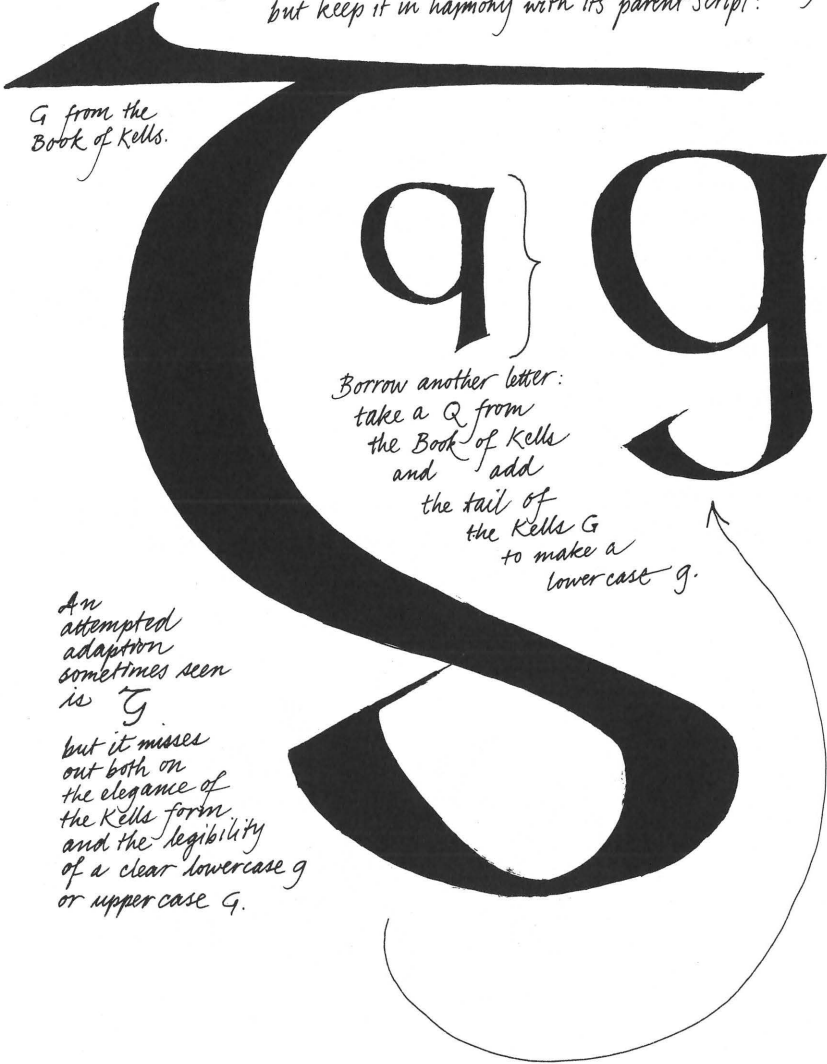 but keep it in harmony with its parent script:
G from the
Book of Kells.
q
g
Borrow another letter:
take a Q from
the Book of Kells
and add
the tail of
the Kells G
to make a
lowercase g.
An
attempted
adaption
sometimes seen
is
but it misses
out both on
the elegance of
the Kells form
and the legibility
of a clear lowercase g
or uppercase G.